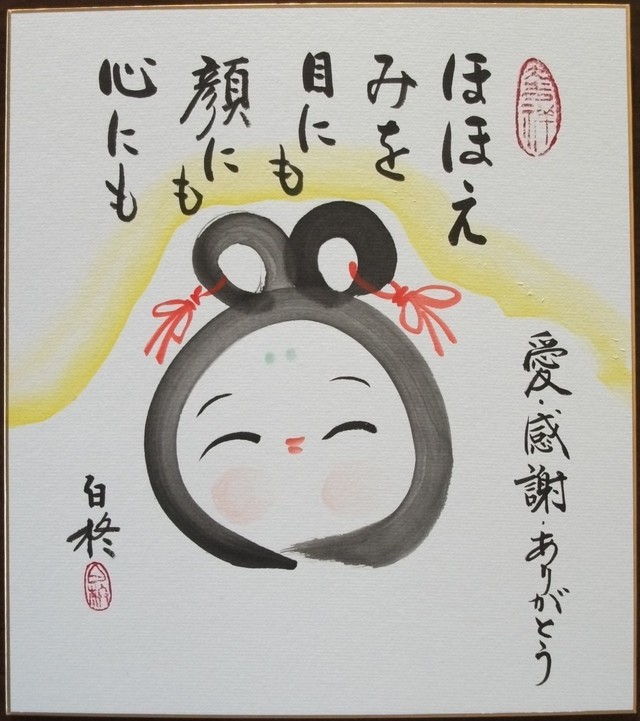 ほほえ
みを
目にも
顔にも
心にも
愛・感謝・ありがとう
白柊